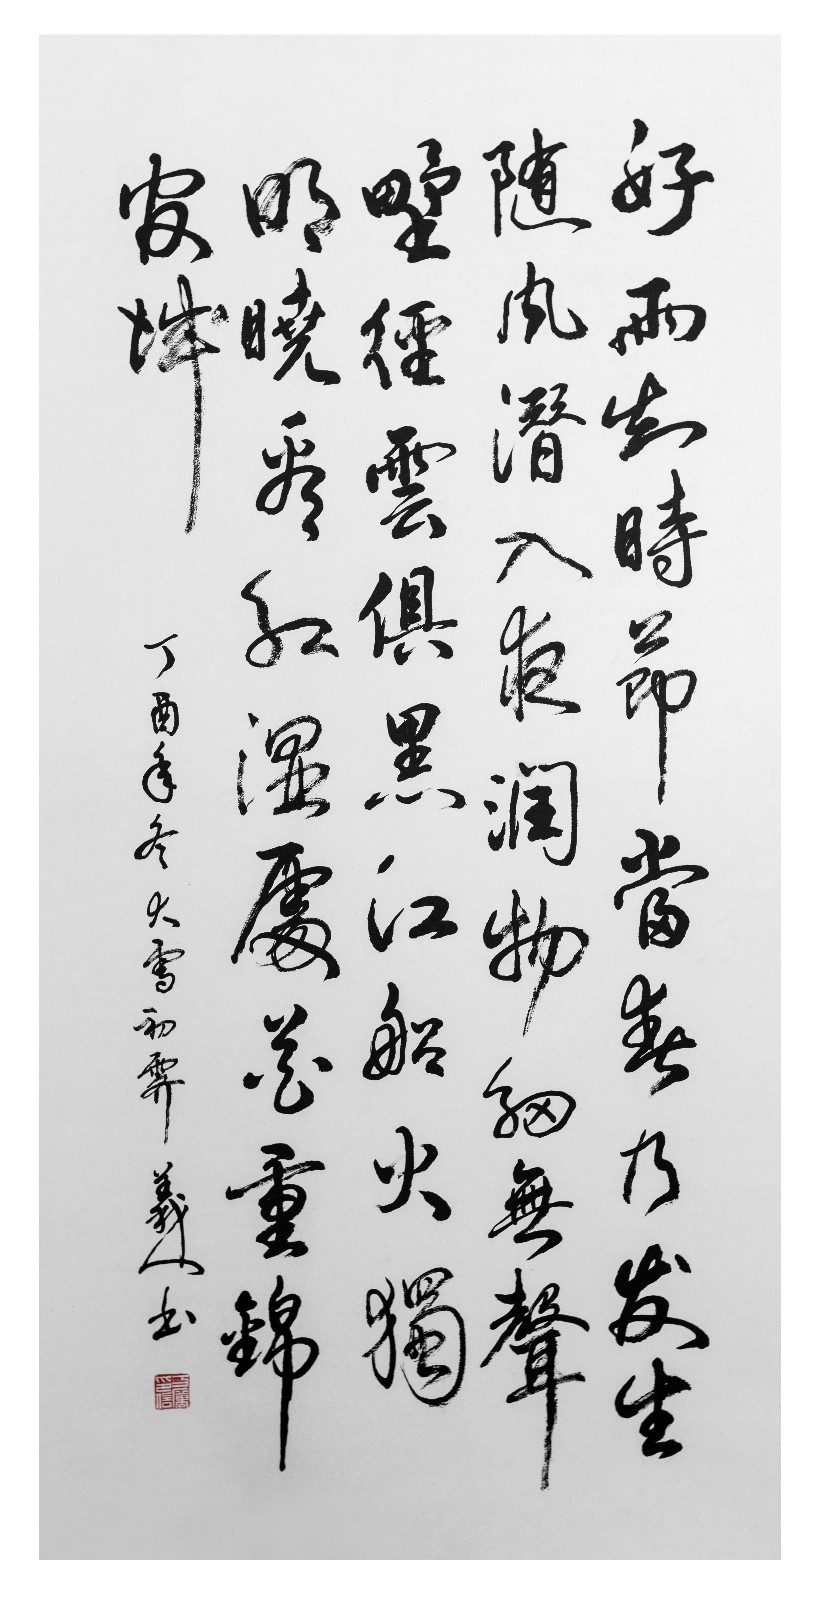 好雨知時節當春乃发生
随风潜入夜潤物細無聲
野徑雲俱黑江船火獨
明曉看紅濕處花重錦
官城
丁酉年冬大雪初霁 義人书